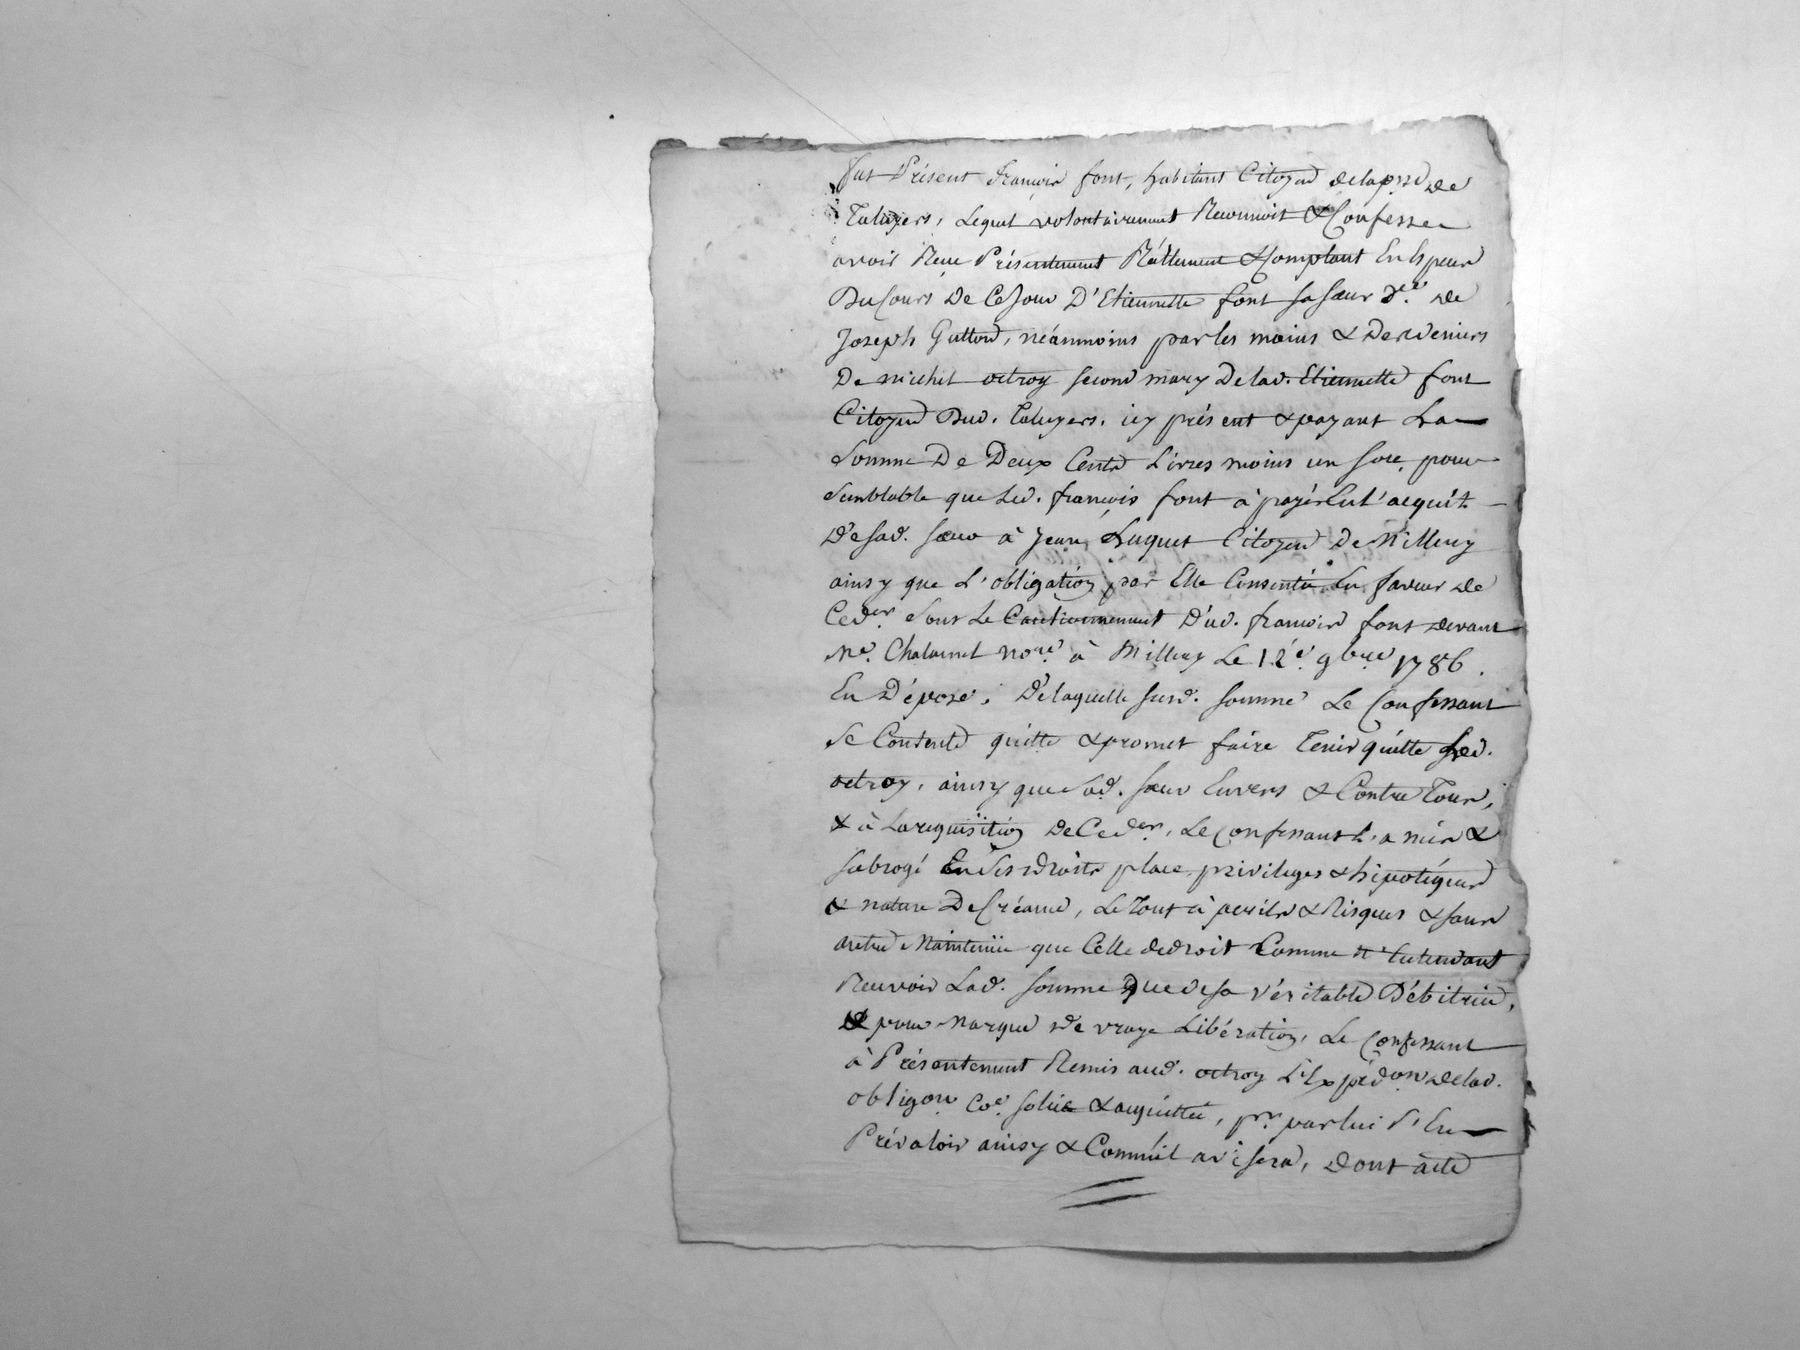 fut Présent françois font, habitant Citoyen dela psse de
Taluyers, Lequel volontairement Reconnoit & Confesse
avoir Reçu Présentement Réellement & Comptant En Especes
Du Cours De Ce Jour D'Etiennette font sa sœur
Joseph Gutton, néanmoins par les mains & Des deniers
De michel octroy second mary De lad. Etiennette font
Citoyen Dud. Taluyers. icy présent & payant La
Somme De Deux Cents Livres moins un sore pour
Semblable que Led. françois font à payér En l'acquit
De sad. sœur à Jean Luquet Citoyen De Millery
ainsy que L'obligation par Elle Consentie En faveur de
Ced.er Sous Le Cautionnement Dud. françois font devant
Me. Chalamel no.re à Millery Le 12.e 9bre 1786.
En Dépose. De laquelle susd. somme Le Confessant
Se Contente quitte & promet faire Tenir quitte Led.
octroy, ainsy que Sad. sœur Envers & Contre Tous,
& à La requisition De Ced.er, Le Confessant L'a mis &
subrogé En Ses droits place privileges & hipotéques
& nature De Créance, Le Tout à perils & Risques & sans
autre Maintenüe que Celle de droit Comme n'Entendant
Recevoir Lad. somme que de sa véritable Débitrice,
& pour Marque de vraye Libération, Le Confessant
à Présentement Remis aud. octroy L'Expédon de lad.
obligon Coe. solüe & acquittée, pr. par lui s'En
Prévaloir ainsy & Comm'il avisera, Dont acte